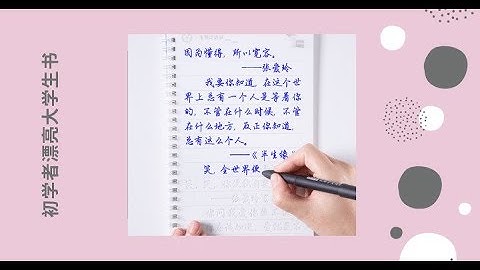 初学者漂亮大学生书
因为懂得，所以宽容。
——张爱玲
我要你知道，在这个世
界上总有一个人是等着你
的，不管在什么时候，不管
在什么地方，反正你知道，
总有这么个人。
——《半生缘》
笑，全世界便